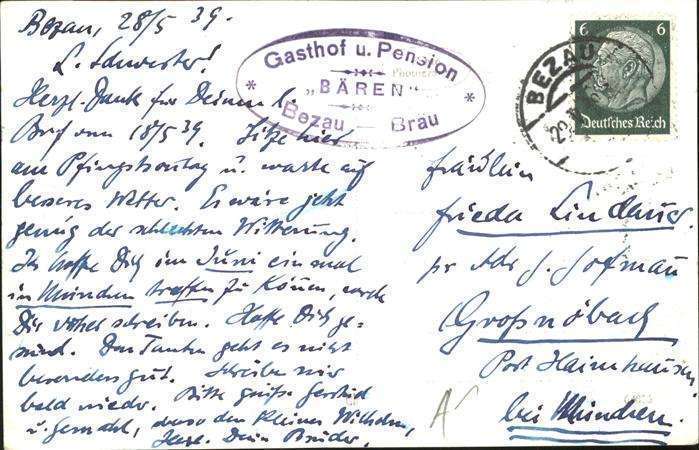 Bezau, 28/5 39.
L. Schwester!
Herzl. Dank für Deinen l.
Brief vom 18/5 39. Sitze hier
am Pfingstsonntag u. warte auf
besseres Wetter. Es wäre jetzt
genug der schlechten Witterung.
Ich hoffe Dich im Juni einmal
in München treffen zu können, werde
Dir vorher schreiben. Hoffe Dich ge-
sund. Den Tanten geht es nicht
besonders gut. Schreibe mir
bald wieder. Bitte grüße
u. Gemahl, den kleinen Wilhelm,
Herzl. Dein Bruder.
Gasthof u. Pension
„BÄREN"
Bezau Bräu
6 6
Deutsches Reich
BEZAU
Fräulein
Frieda Lindauer
pr Adr J. Hofman
Großnöbach
Post Haimhausen
bei München.